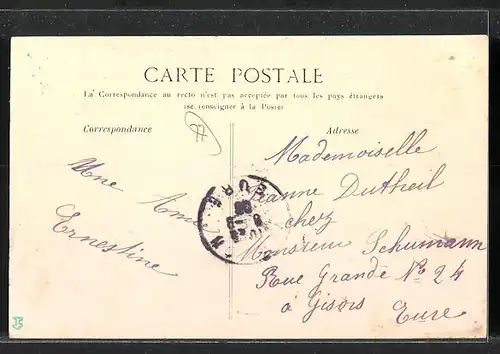 CARTE POSTALE
La Correspondance au recto n'est pas acceptée par tous les pays étrangers
(se renseigner à la Poste)
Correspondance
Adresse
Une Amie
Ernestine
Mademoiselle
Jeanne Dutheil
chez
Monsieur Schumann
Rue Grande No 24
à Gisors Eure
EURE